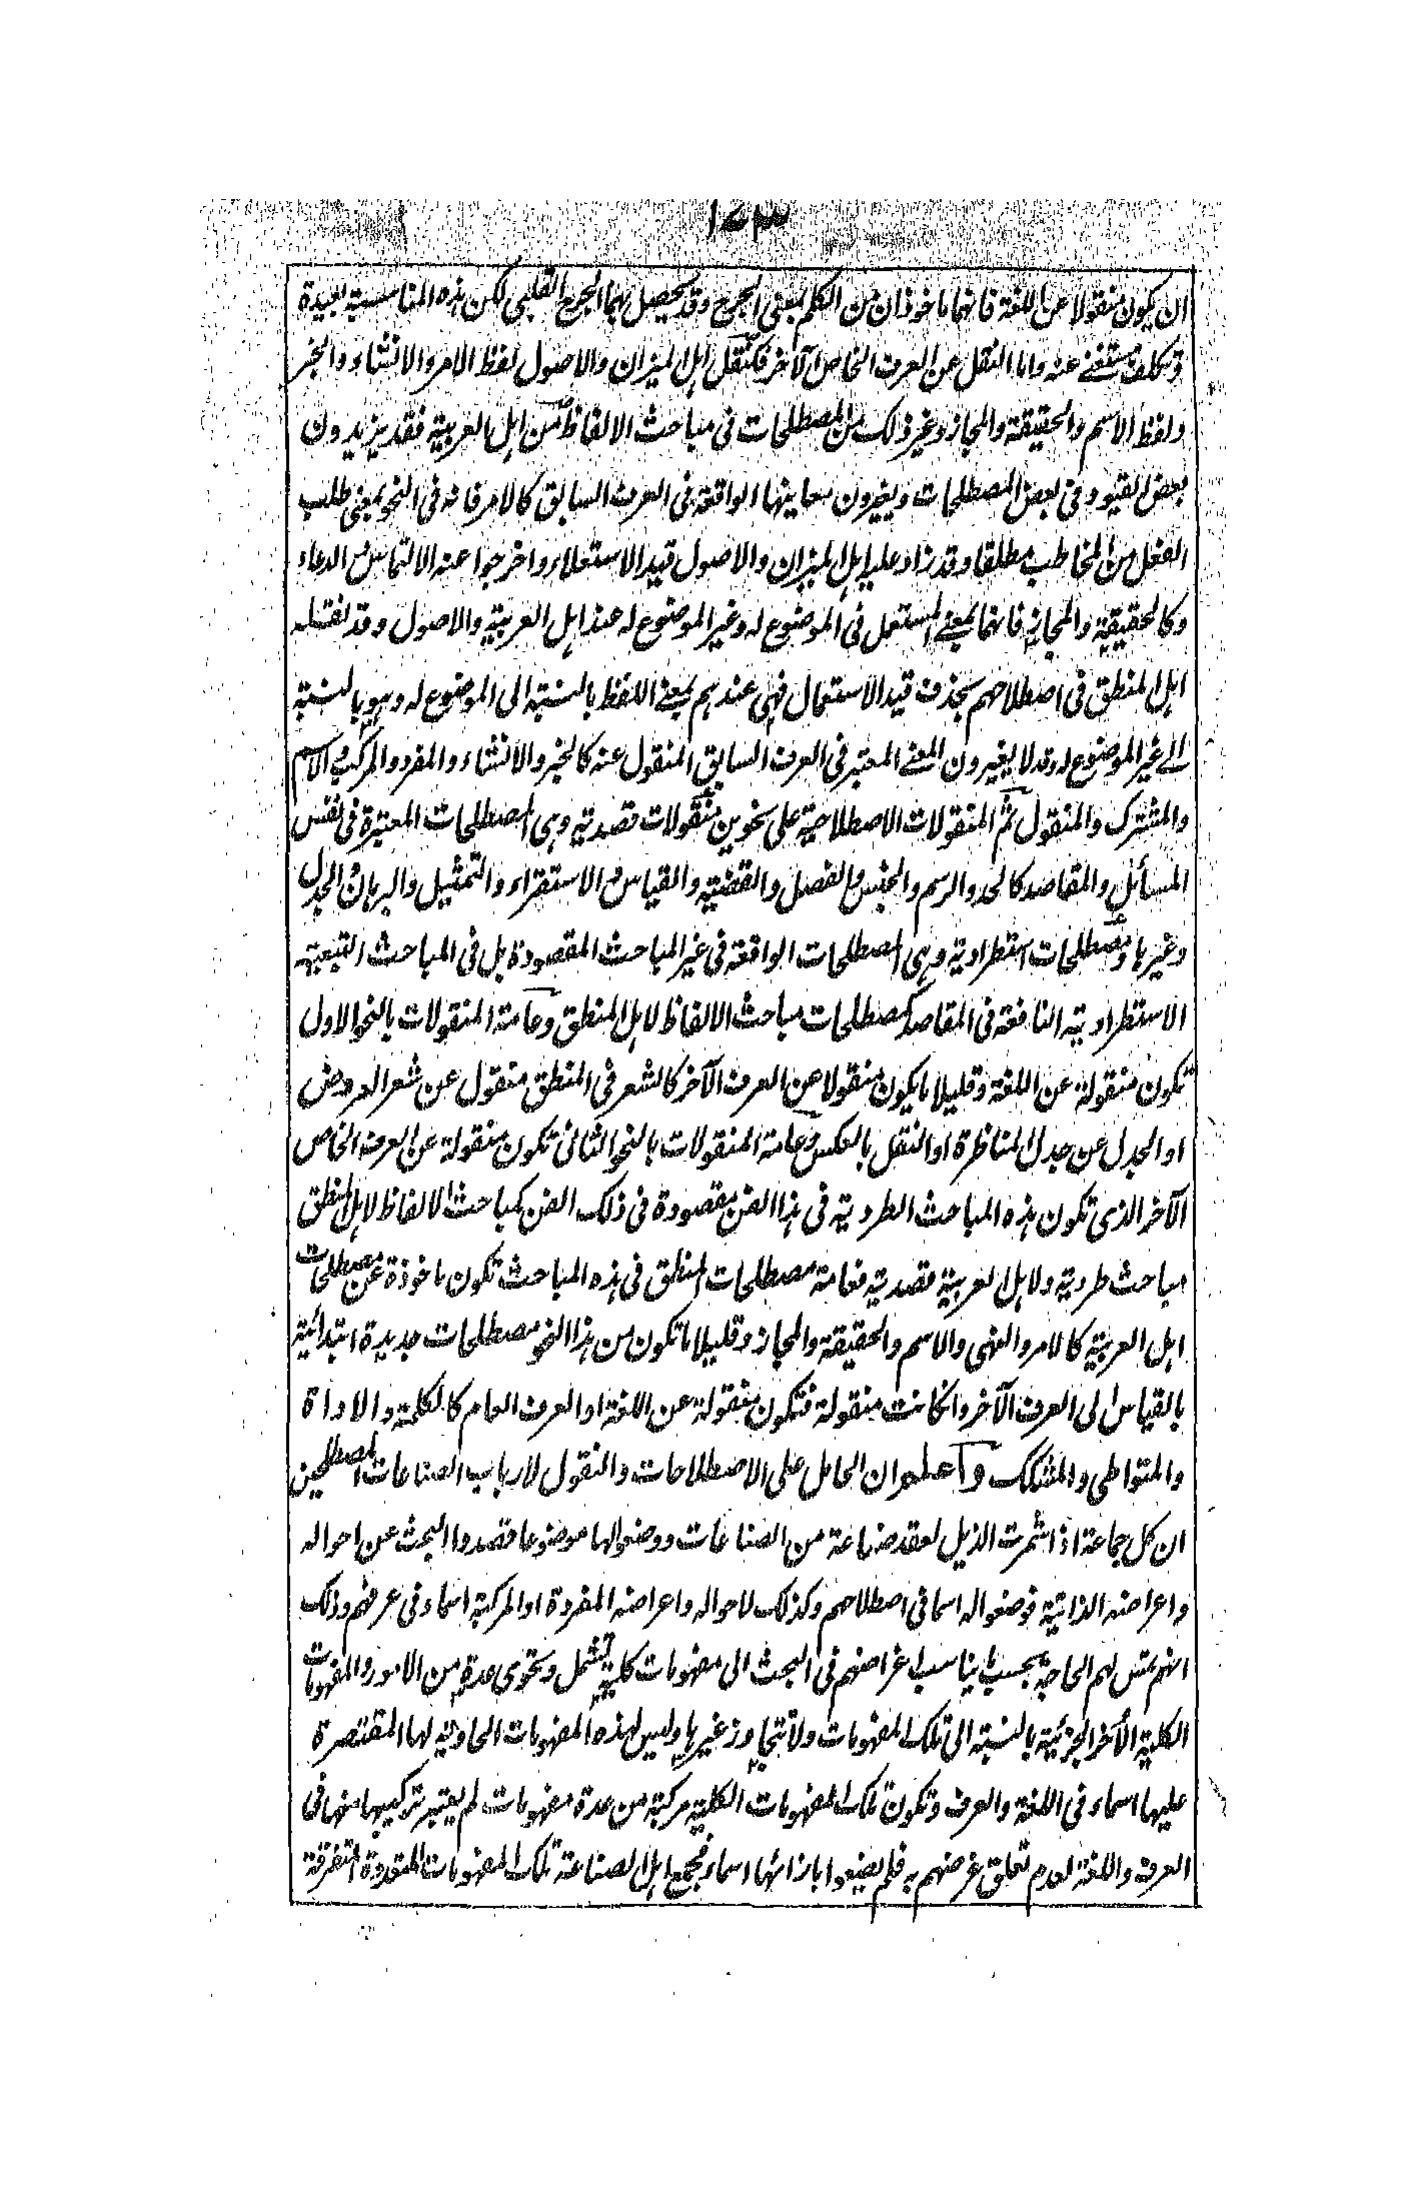 ١٧٣
ان يكون منقولا عن اللغة فانهما ماخوذان من الكلم بمعنى الجرح وقد يحصل بهما الجرح القلبي لكن هذه المناسبة بعيدة
وتكلف مستغنے عنه واما النقل عن العرف الخاص الآخر فكنقل اهل الميزان والاصول لفظ الامر والانشاء والخبر
ولفظ الاسم والحقيقة والمجاز وغير ذلك من المصطلحات فى مباحث الالفاظ من اهل العربية فقد يزيدون
بعض القيود فى بعض المصطلحات ويغيرون معانيها الواقعة فى العرف السابق كالامر فانه فى النحو بمعنى طلب
الفعل من المخاطب مطلقا وقد زاد عليه اهل الميزان والاصول قيد الاستعلاء واخرجوا عنه الالتماس والدعاء
وكالحقيقة والمجاز فانهما بمعنے المستعمل فى الموضوع له وغير الموضوع له عند اهل العربية والاصول وقد نقله
اهل المنطق فى اصطلاحهم بحذف قيد الاستعمال فهى عندهم بمعنے اللفظ بالنسبة الى الموضوع له وهو بالنسبة
الے غير الموضوع له وقد لا يغيرون المعنے المعتبر فى العرف السابق المنقول عنه كالخبر والانشاء والمفرد والمركب والاسم
والمشترك والمنقول ثم المنقولات الاصطلاحية على نحوين منقولات قصدية وهى المصطلحات المعتبرة فى نفس
المسائل والمقاصد كالحد والرسم والجنس والفصل والقضية والقياس والاستقراء والتمثيل والبرهان والجدل
وغيرها ومصطلحات استطرادية وهى المصطلحات الواقعة فى غير المباحث المقصودة بل فى المباحث التبعية
الاستطرادية النافعة فى المقاصد كمصطلحات مباحث الالفاظ لاهل المنطق وعامة المنقولات بالنحو الاول
تكون منقولة عن اللغة وقليلا ما يكون منقولا عن العرف الآخر كالشعر فى المنطق منقول عن شعر العروض
او الجدل عن جدل المناظرة او النقل بالعكس وعامة المنقولات بالنحو الثانى تكون منقولة عن العرف الخاص
الآخر الذى تكون هذه المباحث الطردية فى هذا الفن مقصودة فى ذلك الفن كمباحث الالفاظ لاهل المنطق
مباحث طردية ولاهل العربية قصدية فعامة مصطلحات المنطق فى هذه المباحث تكون ماخوذة عن مصطلحات
اهل العربية كالامر والنهى والاسم والحقيقة والمجاز وقليلا ما تكون من هذا النحو مصطلحات جديدة ابتدائية
بالقياس الى العرف الآخر وان كانت منقولة فتكون منقولة عن اللغة او العرف العام كالكلمة والاداة
والمتواطى والمشكك واعلم ان الحامل على الاصطلاحات والنقول لارباب الصناعات المصطلحين
ان كل جماعة اذا شمرت الذيل لعقد صناعة من الصناعات ووضعوا لها موضوعا قصدوا البحث عن احواله
واعراضه الذاتية فوضعوا له اسما فى اصطلاحهم وكذلك لاحواله واعراضه المفردة او المركبة اسماء فى عرفهم وذلك
انهم تمس لهم الحاجة بحسب ما يناسب اغراضهم فى البحث الى مفهومات كلية تشمل وتحوى عدة من الامور والمفهومات
الكلية الأخر الجزئية بالنسبة الى تلك المفهومات ولا تتجاوز غيرها وليس لهذه المفهومات الحاوية لها المقتصرة
عليها اسماء فى اللغة والعرف وتكون تلك المفهومات الكلية مركبة من عدة مفهومات لم يعتبر تركيبها منها فى
العرف واللغة لعدم تعلق غرضهم به فلم يضعوا بازائها اسماء فجمع اهل الصناعة تلك المفهومات المتعددة المتفرقة